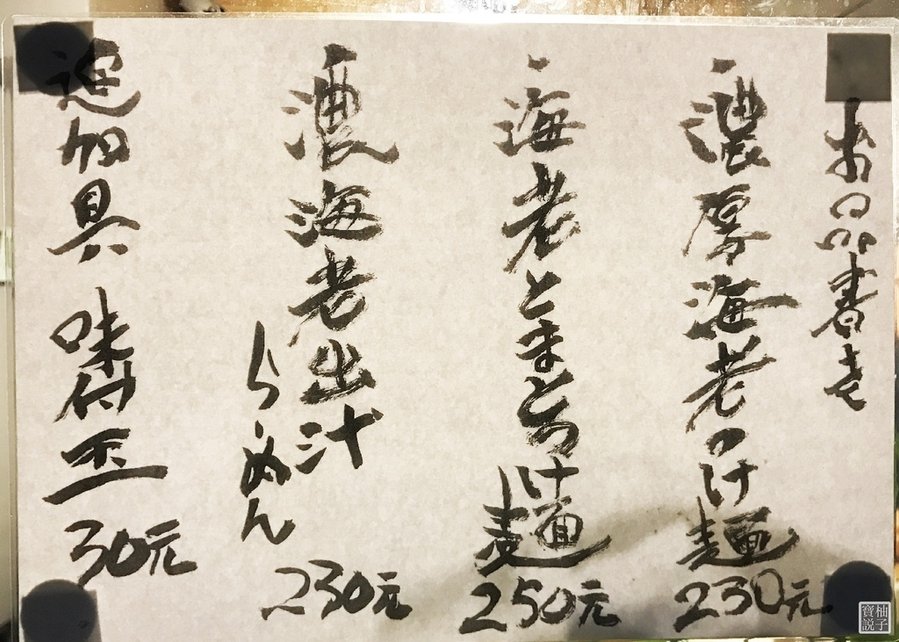 本日品書き
・濃厚海老つけ麺 230元
・海老とまとつけ麺 250元
・濃海老出汁
らーめん 230元
追加具 味付玉 30元
柚子
寶說